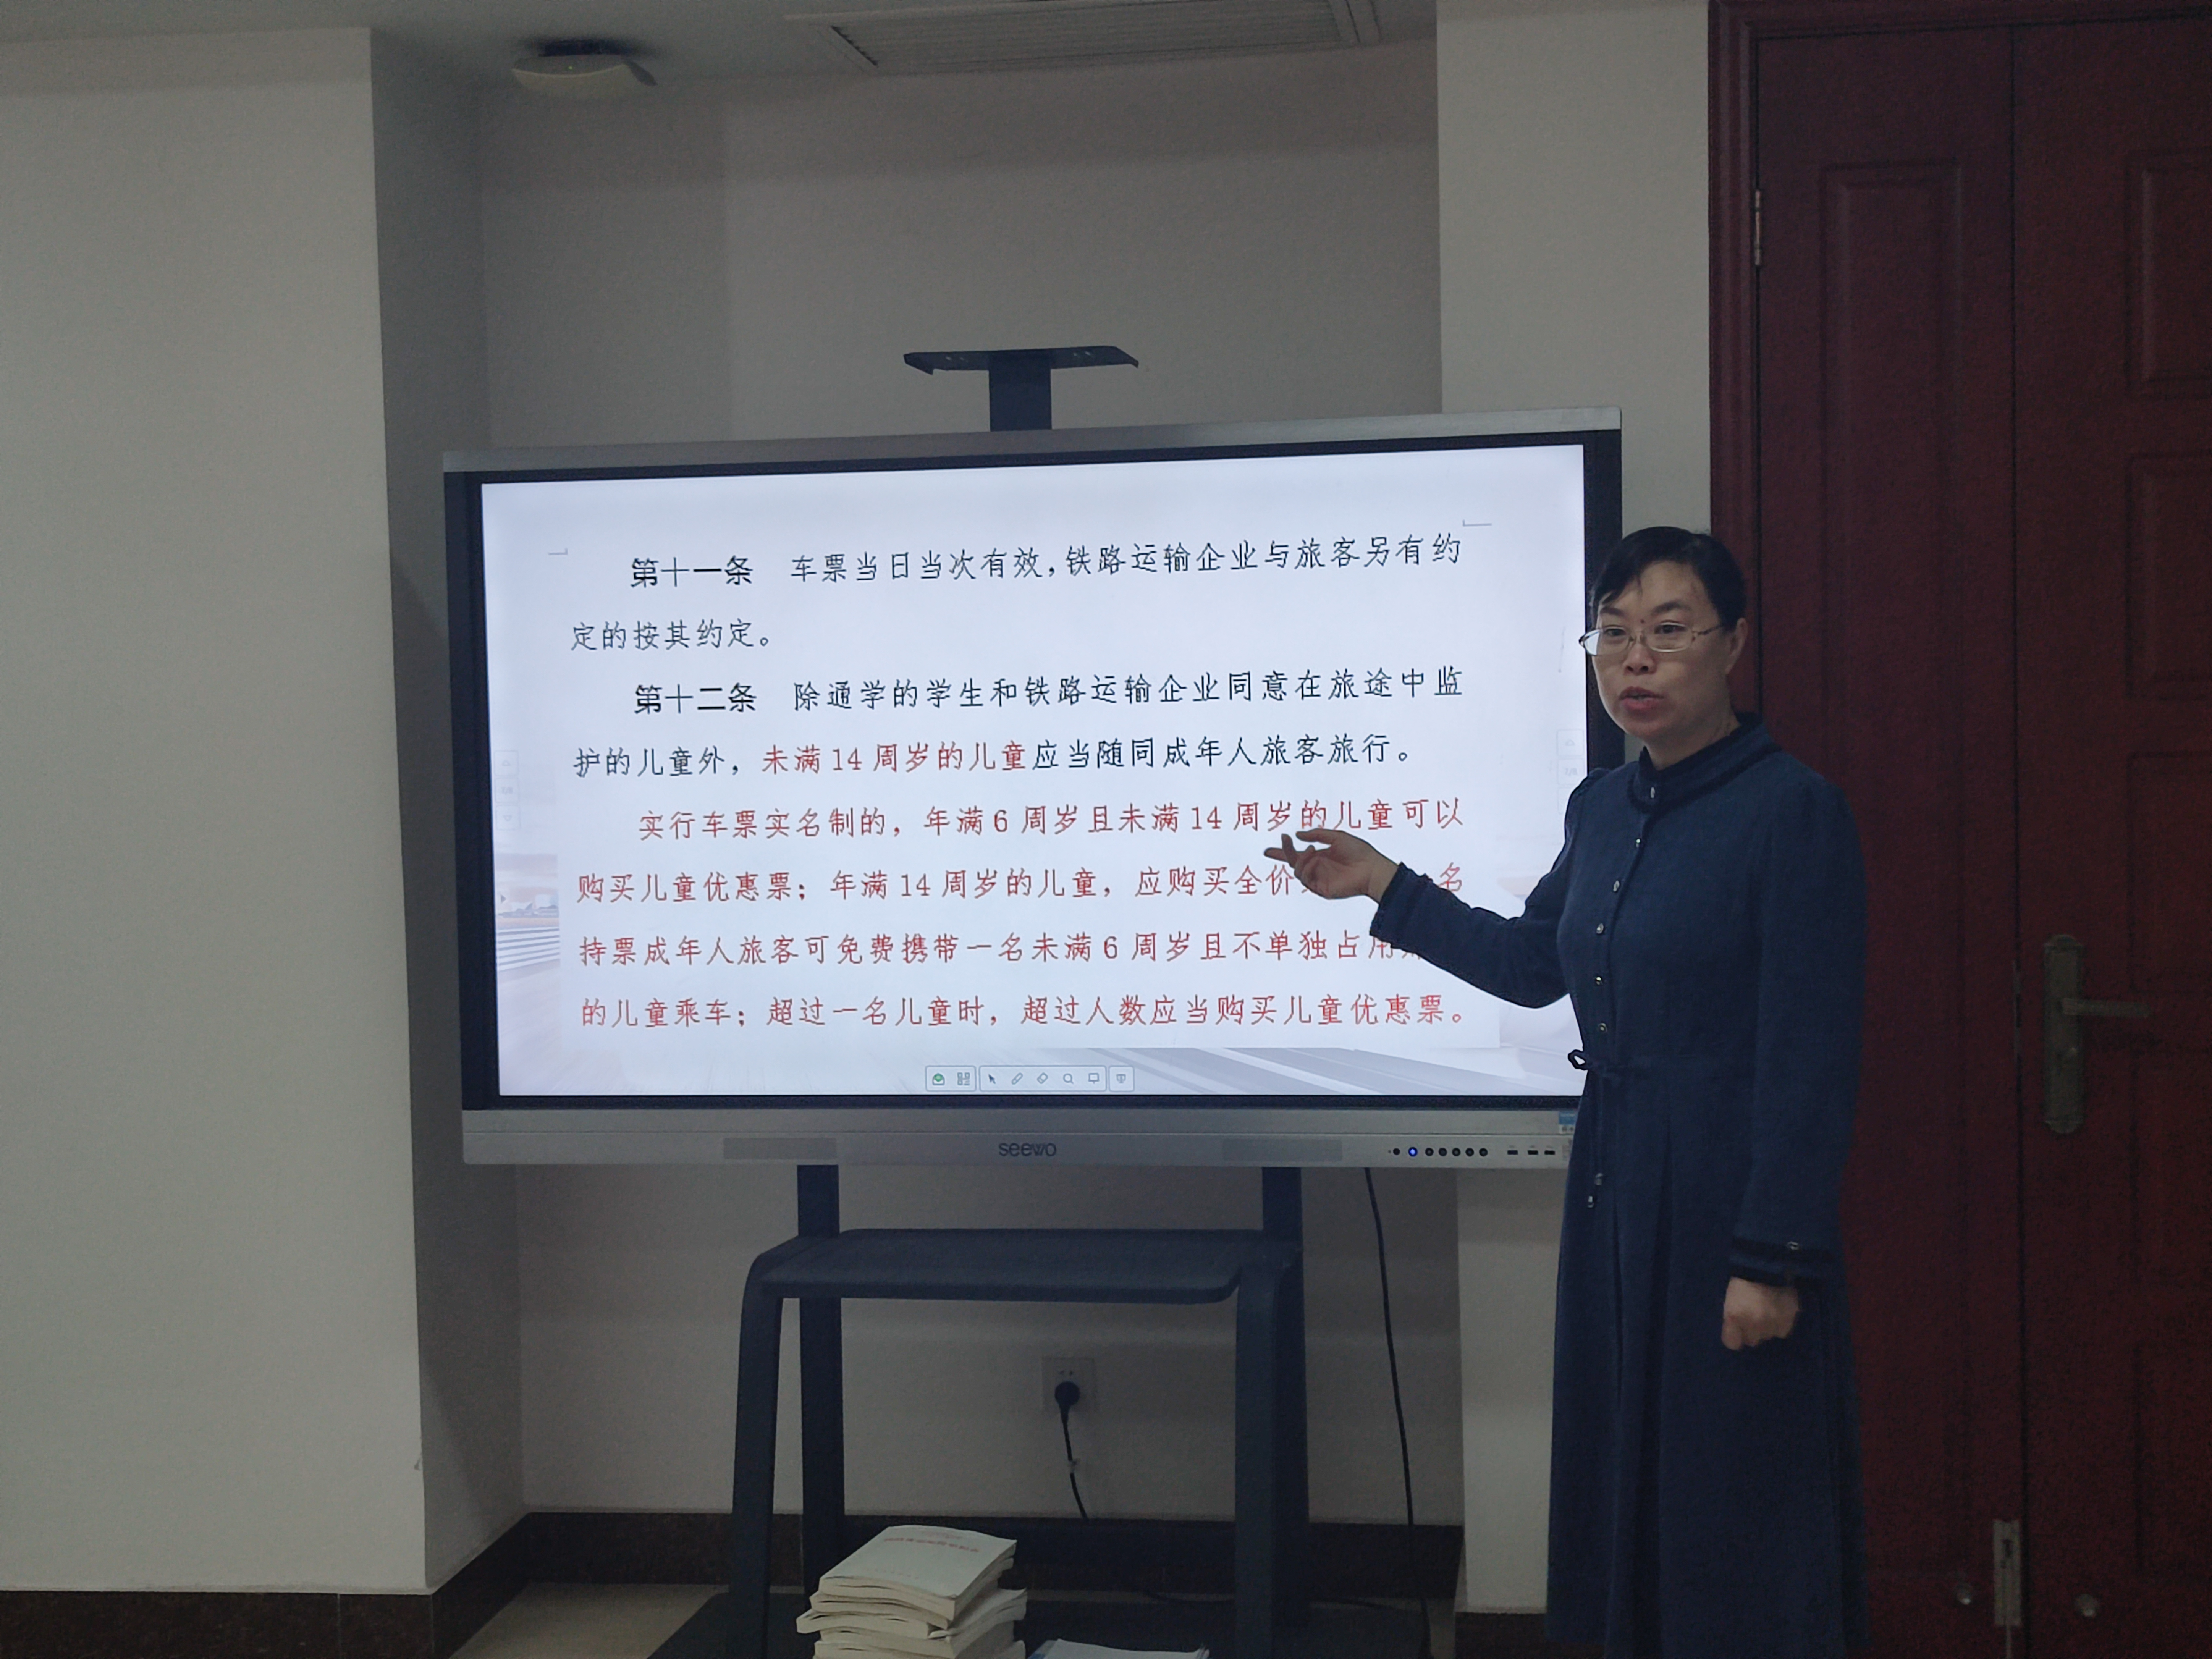 第十一条 车票当日当次有效，铁路运输企业与旅客另有约
定的按其约定。
第十二条 除通学的学生和铁路运输企业同意在旅途中监
护的儿童外，未满14周岁的儿童应当随同成年人旅客旅行。
实行车票实名制的，年满6周岁且未满14周岁的儿童可以
购买儿童优惠票；年满14周岁的儿童，应购买全价 名
持票成年人旅客可免费携带一名未满6周岁且不单独占用
的儿童乘车；超过一名儿童时，超过人数应当购买儿童优惠票。
seewo